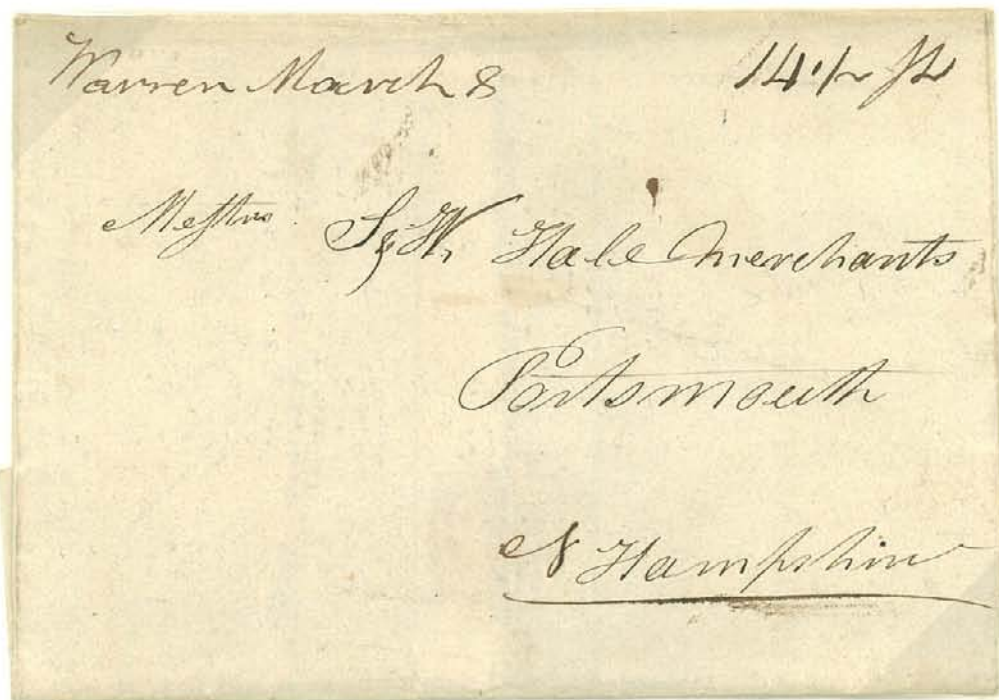 Warren March 8
14 1/2
Messrs S & W Hale Merchants
Portsmouth
N Hampshire